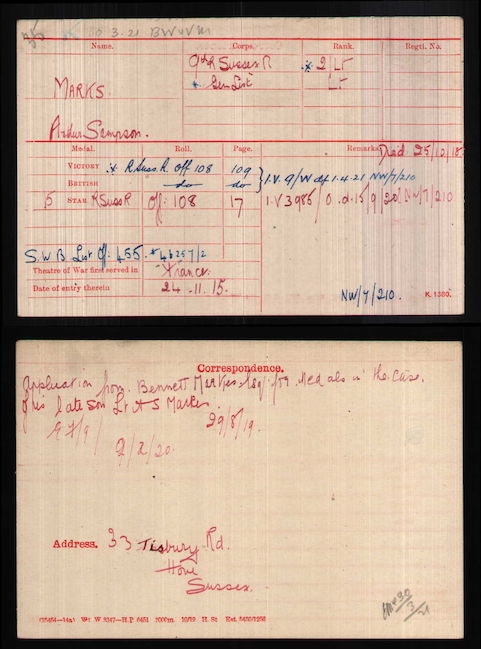 3.21 BWVM
Name. Corps. Rank. Regtl. No.
MARKS 9th R Sussex R. * 2/Lt
* Gen List Lt
Arthur Sampson.
Medal. Roll. Page. Remarks. Died 25/10/18
VICTORY * R Suss. R. Off 108 109
BRITISH do do I.V. 9/W df 1.4.21 NW/7/210
15 STAR R Suss R Off. 108 17 I.V 3986/ O.d. 15/9/20 NW/7/210
S.W.B. List Off. 455 46257/2
Theatre of War first served in France.
Date of entry therein 24.11.15. NW/7/210. K. 1380.
Correspondence.
Application from Bennett Marks Esq. for Medals in the case
of his late son Lt A S Marks 29/8/19.
9/2/20.
Address. 33 Tisbury Rd.
Hove
Sussex.
(35454—14a) Wt W 3347—H.P 6451 10/19 H. St